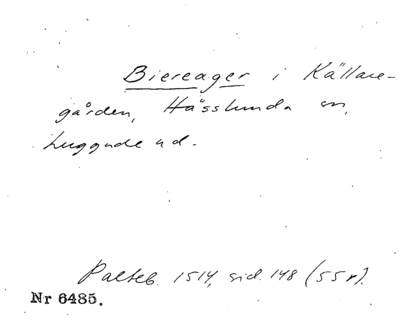 Biereager i Källare-
gården, Hässlunda sn,
Luggude hd.
Palteb. 1514, sid. 148 (55 r).
Nr 6485.